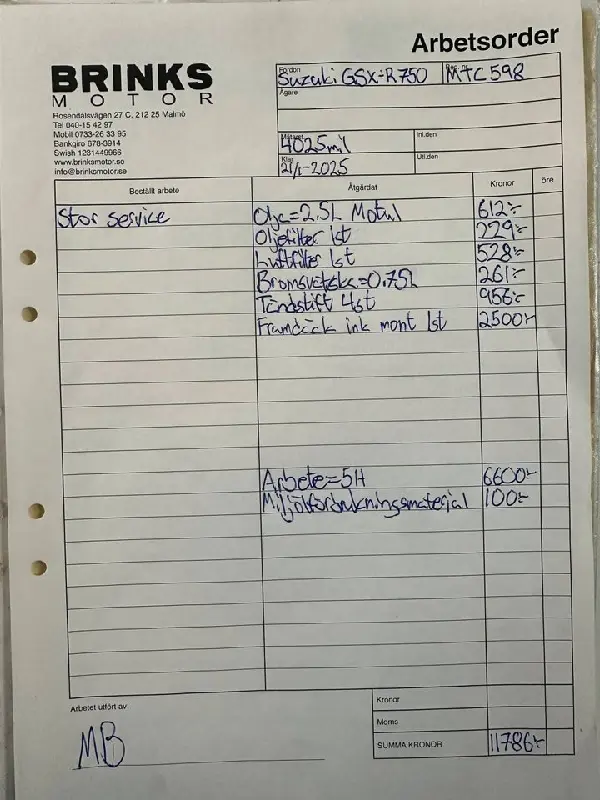 Arbetsorder
BRINKS
MOTOR
Hosendalsvägen 27 C, 212 25 Malmö
Tel 040-15 42 97
Mobil 0733-26 33 95
Bankgiro 878-0914
Swish 1231440966
www.brinksmotor.se
info@brinksmotor.se
Fordon Suzuki GSX-R750 Reg. nr MTC598
Ägare
4025mil In.den
Klar 21/1-2025 Ut.den
Beställt arbete Åtgärdat Kronor Öre
Stor service Olja=2.5L Motul 612:-
Oljefilter 1st 229:-
Luftfilter 1st 528:-
Bromsvätska=0,75L 261:-
Tändstift 4st 956:-
Framdäck ink mont 1st 2500:-
Arbete=5H 6600:-
Miljö/förbrukningsmaterial 100:-
Arbetet utfört av
MB
Kronor
Moms
SUMMA KRONOR 11786:-